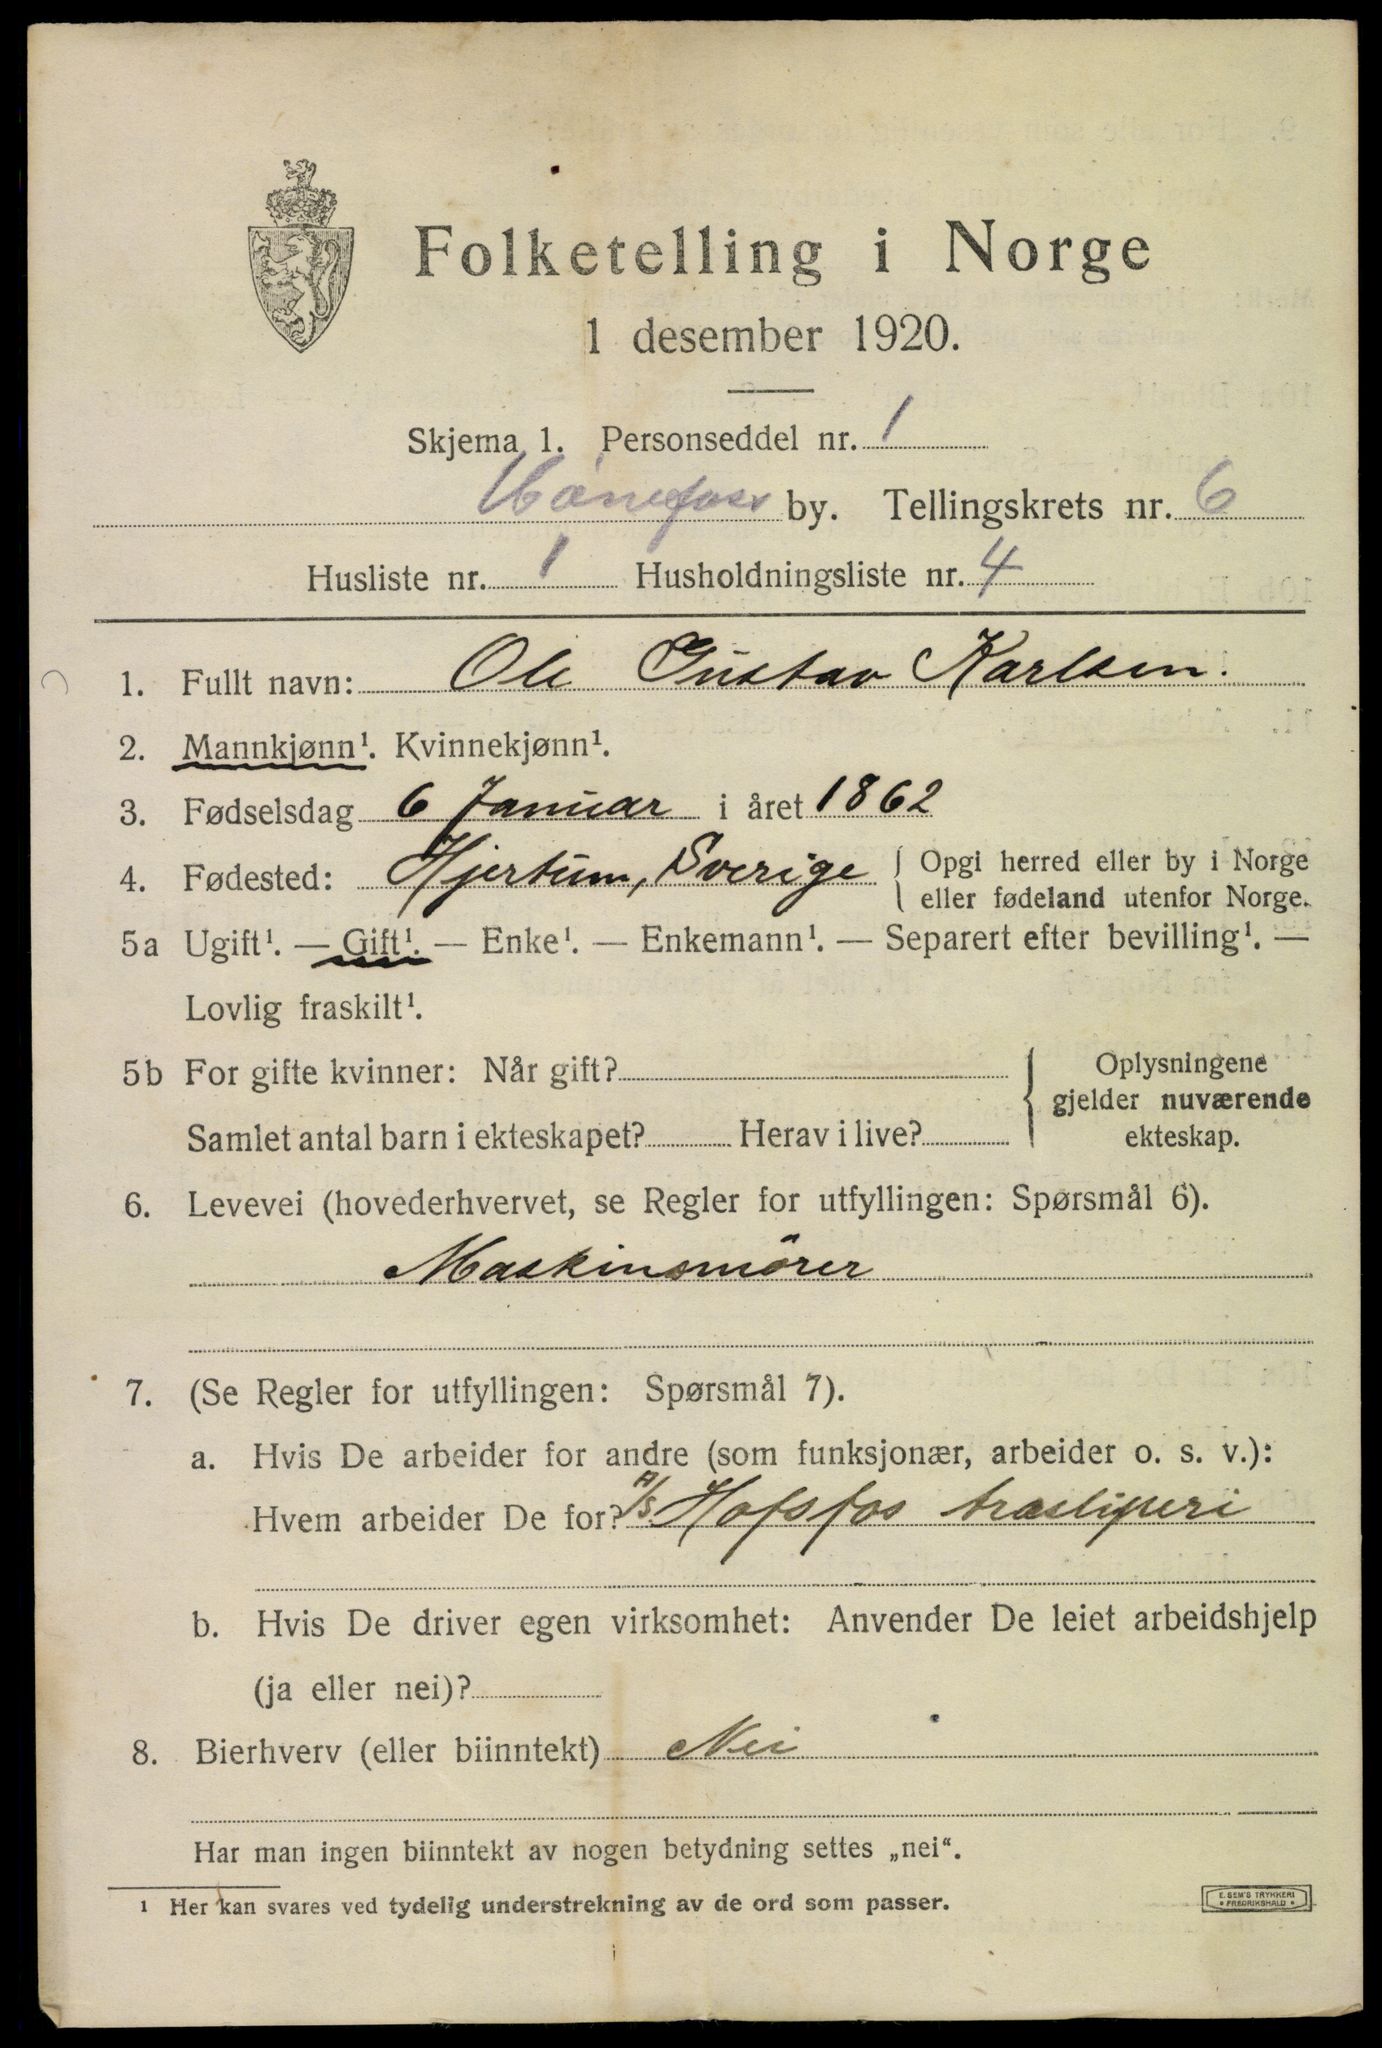 Folketelling i Norge
1 desember 1920.
Skjema 1. Personseddel nr. 1
Hønefoss by. Tellingskrets nr. 6
Husliste nr. 1 Husholdningsliste nr. 4
1. Fullt navn: Ole Gustav Karlsen.
2. Mannkjønn¹. Kvinnekjønn¹.
3. Fødselsdag 6 Januar i året 1862
4. Fødested: Hjertum, Sverige { Opgi herred eller by i Norge
eller fødeland utenfor Norge.
5a Ugift¹. — Gift¹. — Enke¹. — Enkemann¹. — Separert efter bevilling¹. —
Lovlig fraskilt¹.
5b For gifte kvinner: Når gift?
Samlet antal barn i ekteskapet? Herav i live?
Oplysningene
gjelder nuværende
ekteskap.
6. Levevei (hovederhvervet, se Regler for utfyllingen: Spørsmål 6).
Maskinsmörer
7. (Se Regler for utfyllingen: Spørsmål 7).
a. Hvis De arbeider for andre (som funksjonær, arbeider o. s. v.):
Hvem arbeider De for? A/S Hofsfos træsliperi
b. Hvis De driver egen virksomhet: Anvender De leiet arbeidshjelp
(ja eller nei)?
8. Bierhverv (eller biinntekt) Nei
Har man ingen biinntekt av nogen betydning settes „nei“.
¹ Her kan svares ved tydelig understrekning av de ord som passer.
E. SEM'S TRYKKERI
FREDRIKSHALD